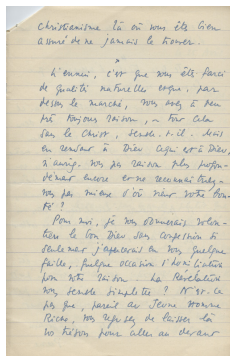 Christianisme là où vous êtes bien
assuré de ne jamais le trouver.
x
L'ennui, c'est que vous êtes farci
de qualités naturelles et que, par
dessus le marché, vous avez à peu
près toujours raison, — tout cela
sans le Christ, semble-t-il. Mais
en rendant à Dieu ce qui est à Dieu,
n'auriez-vous pas raison plus profon-
dément encore et ne reconnaîtriez-
vous pas mieux d'où vient votre bon-
té ?
Pour moi, je vous donnerais volon-
tiers le bon Dieu sans confession si
seulement j'apercevais en vous quelque
faille, quelque occasion d'humiliation
pour votre raison. La Révélation
vous semble simplette ? N'est-ce
pas que, pareil au Jeune Homme
Riche, vous refusez de laisser là
vos trésors pour aller au devant